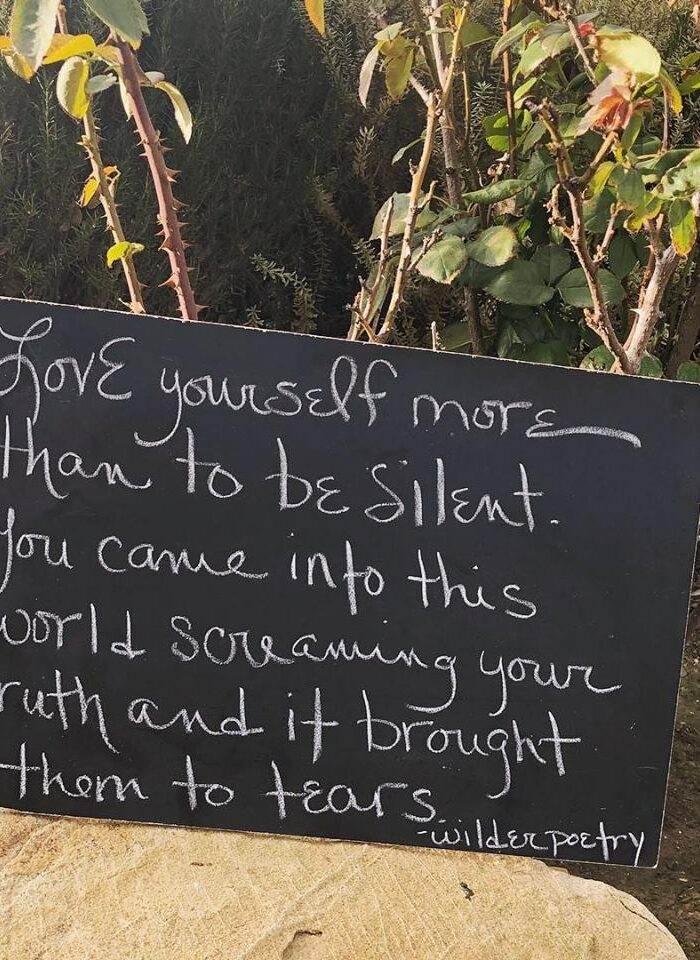 Love yourself more
than to be silent.
You came into this
world screaming your
ruth and it brought
them to tears.
-wilderpoetry